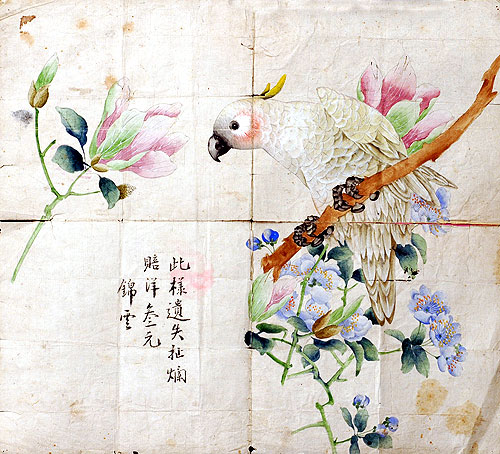 此樣遺失扯爛
賠洋叁元
錦雲